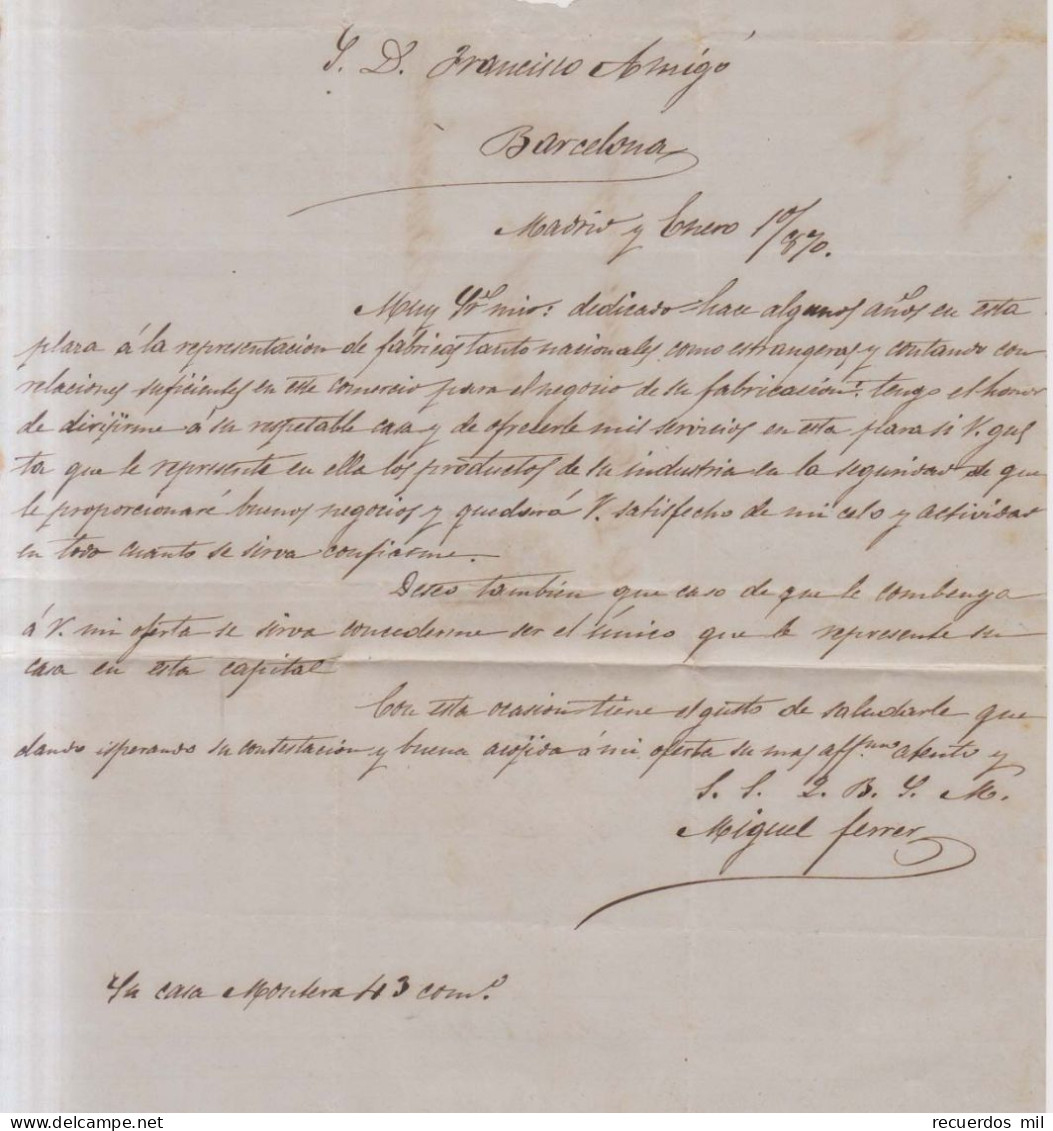 S. D. Francisco Amigó
Barcelona
Madrid y Enero 10/870.
Muy Sr. mio: dedicado hace algunos años en esta
plaza á la representacion de fabricas tanto nacionales como estrangeras y contando con
relaciones suficientes en este comercio para el negocio de su fabricacion: tengo el honor
de dirijirme á su respetable casa y de ofrecerle mis servicios en esta plaza si V. gus
ta que le represente en ella los productos de su industria en la seguridad de que
le proporcionaré buenos negocios y quedará V. satisfecho de mi celo y actividad
en todo cuanto se sirva confiarme.
Deseo tambien que caso de que le combenga
á V. mi oferta se sirva concederme ser el único que le represente su
casa en esta capital
Con esta ocasion tiene el gusto de saludarle que
dando esperando su contestacion y buena acojida á mi oferta su mas aff.mo atento y
S. S. Q. B. S. M.
Miguel ferrer
Su casa Montera 43 com.o
recuerdos mil